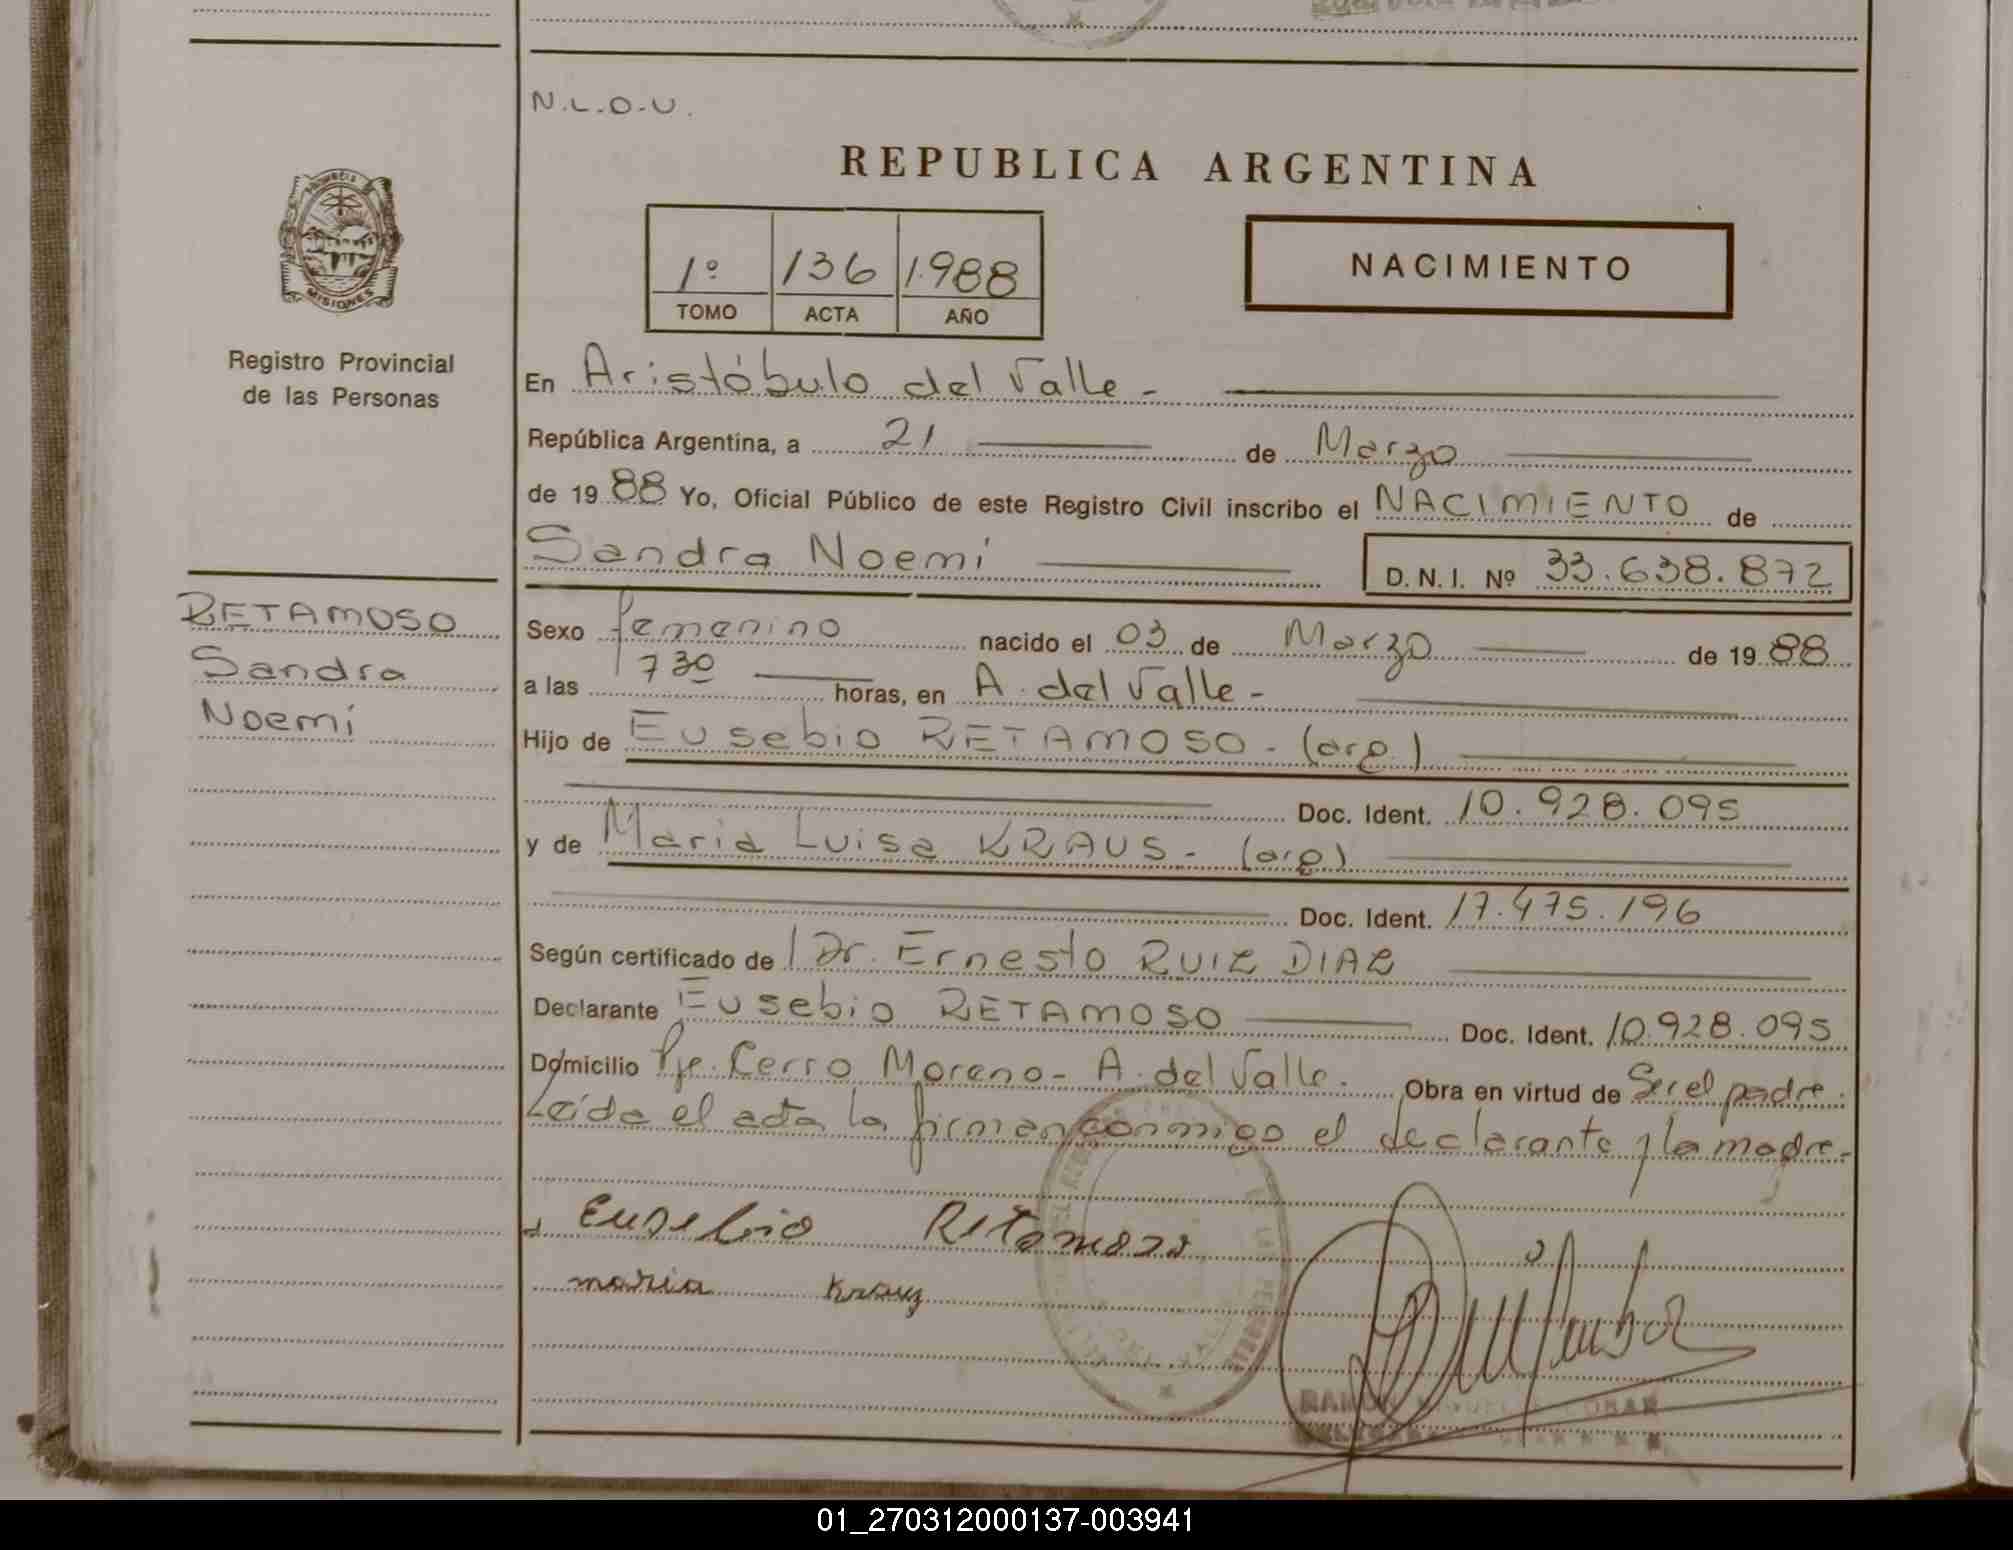 N.L.O.U.
REPUBLICA ARGENTINA
PROVINCIA
MISIONES
1º 136 1.988
TOMO ACTA AÑO
NACIMIENTO
Registro Provincial
de las Personas
En Aristóbulo del Valle -
República Argentina, a 21 de Marzo
de 19 88 Yo, Oficial Público de este Registro Civil inscribo el NACIMIENTO de
Sandra Noemí D. N. I. Nº 33.638.872
RETAMOSO
Sandra
Noemí
Sexo femenino nacido el 03 de Marzo de 19 88
a las 7 30 horas, en A. del Valle -
Hijo de Eusebio RETAMOSO - (arg)
Doc. Ident. 10.928.095
y de Maria Luisa KRAUS - (arg)
Doc. Ident. 17.475.196
Según certificado de Dr. Ernesto RUIZ DIAZ
Declarante Eusebio RETAMOSO Doc. Ident. 10.928.095
Domicilio Pje. Cerro Moreno - A. del Valle. Obra en virtud de Ser el padre.
Leída el acta la firman conmigo el declarante y la madre -
Eusebio Retamoso
maria Krauz
RAMON
01_270312000137-003941